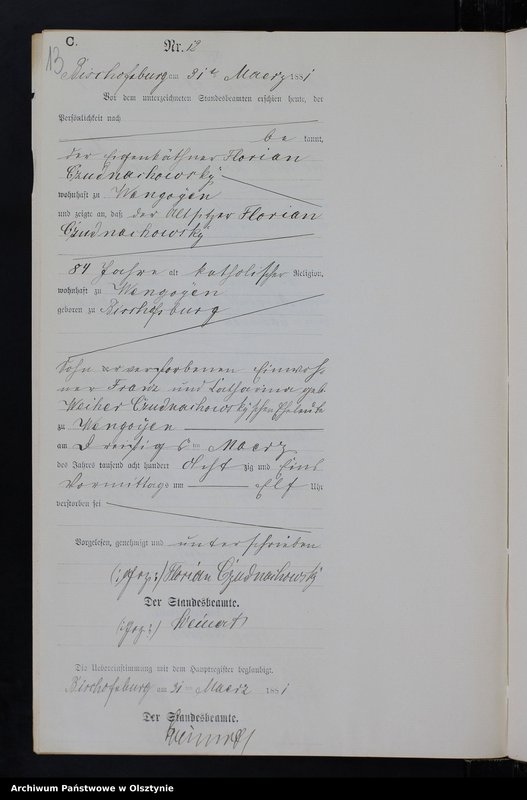 C.
13
Nr. 12
Bischofsburg am 31ten Maerz 1881
Vor dem unterzeichneten Standesbeamten erschien heute, der
Persönlichkeit nach
be kannt,
der Eigenkäthner Florian
Czudnachowsky
wohnhaft zu Wengoyen
und zeigte an, daß der Altsitzer Florian
Czudnachowsky
84 Jahre alt katholischer Religion,
wohnhaft zu Wengoyen
geboren zu Bischofsburg
Sohn der verstorbenen Einwoh
ner Franz und Catharina geb
Weiher Czudnachowsky'schen Eheleute
zu Wengoyen
am Dreißigsten Maerz
des Jahres tausend acht hundert Acht zig und Eins
Vormittags um Elf Uhr
verstorben sei
Vorgelesen, genehmigt und unterschrieben
(:gez:) Florian Czudnachowsky
Der Standesbeamte.
(:gez:) Weinert
Die Uebereinstimmung mit dem Hauptregister beglaubigt.
Bischofsburg am 31ten Maerz 1881
Der Standesbeamte.
Weinert
Archiwum Państwowe w Olsztynie